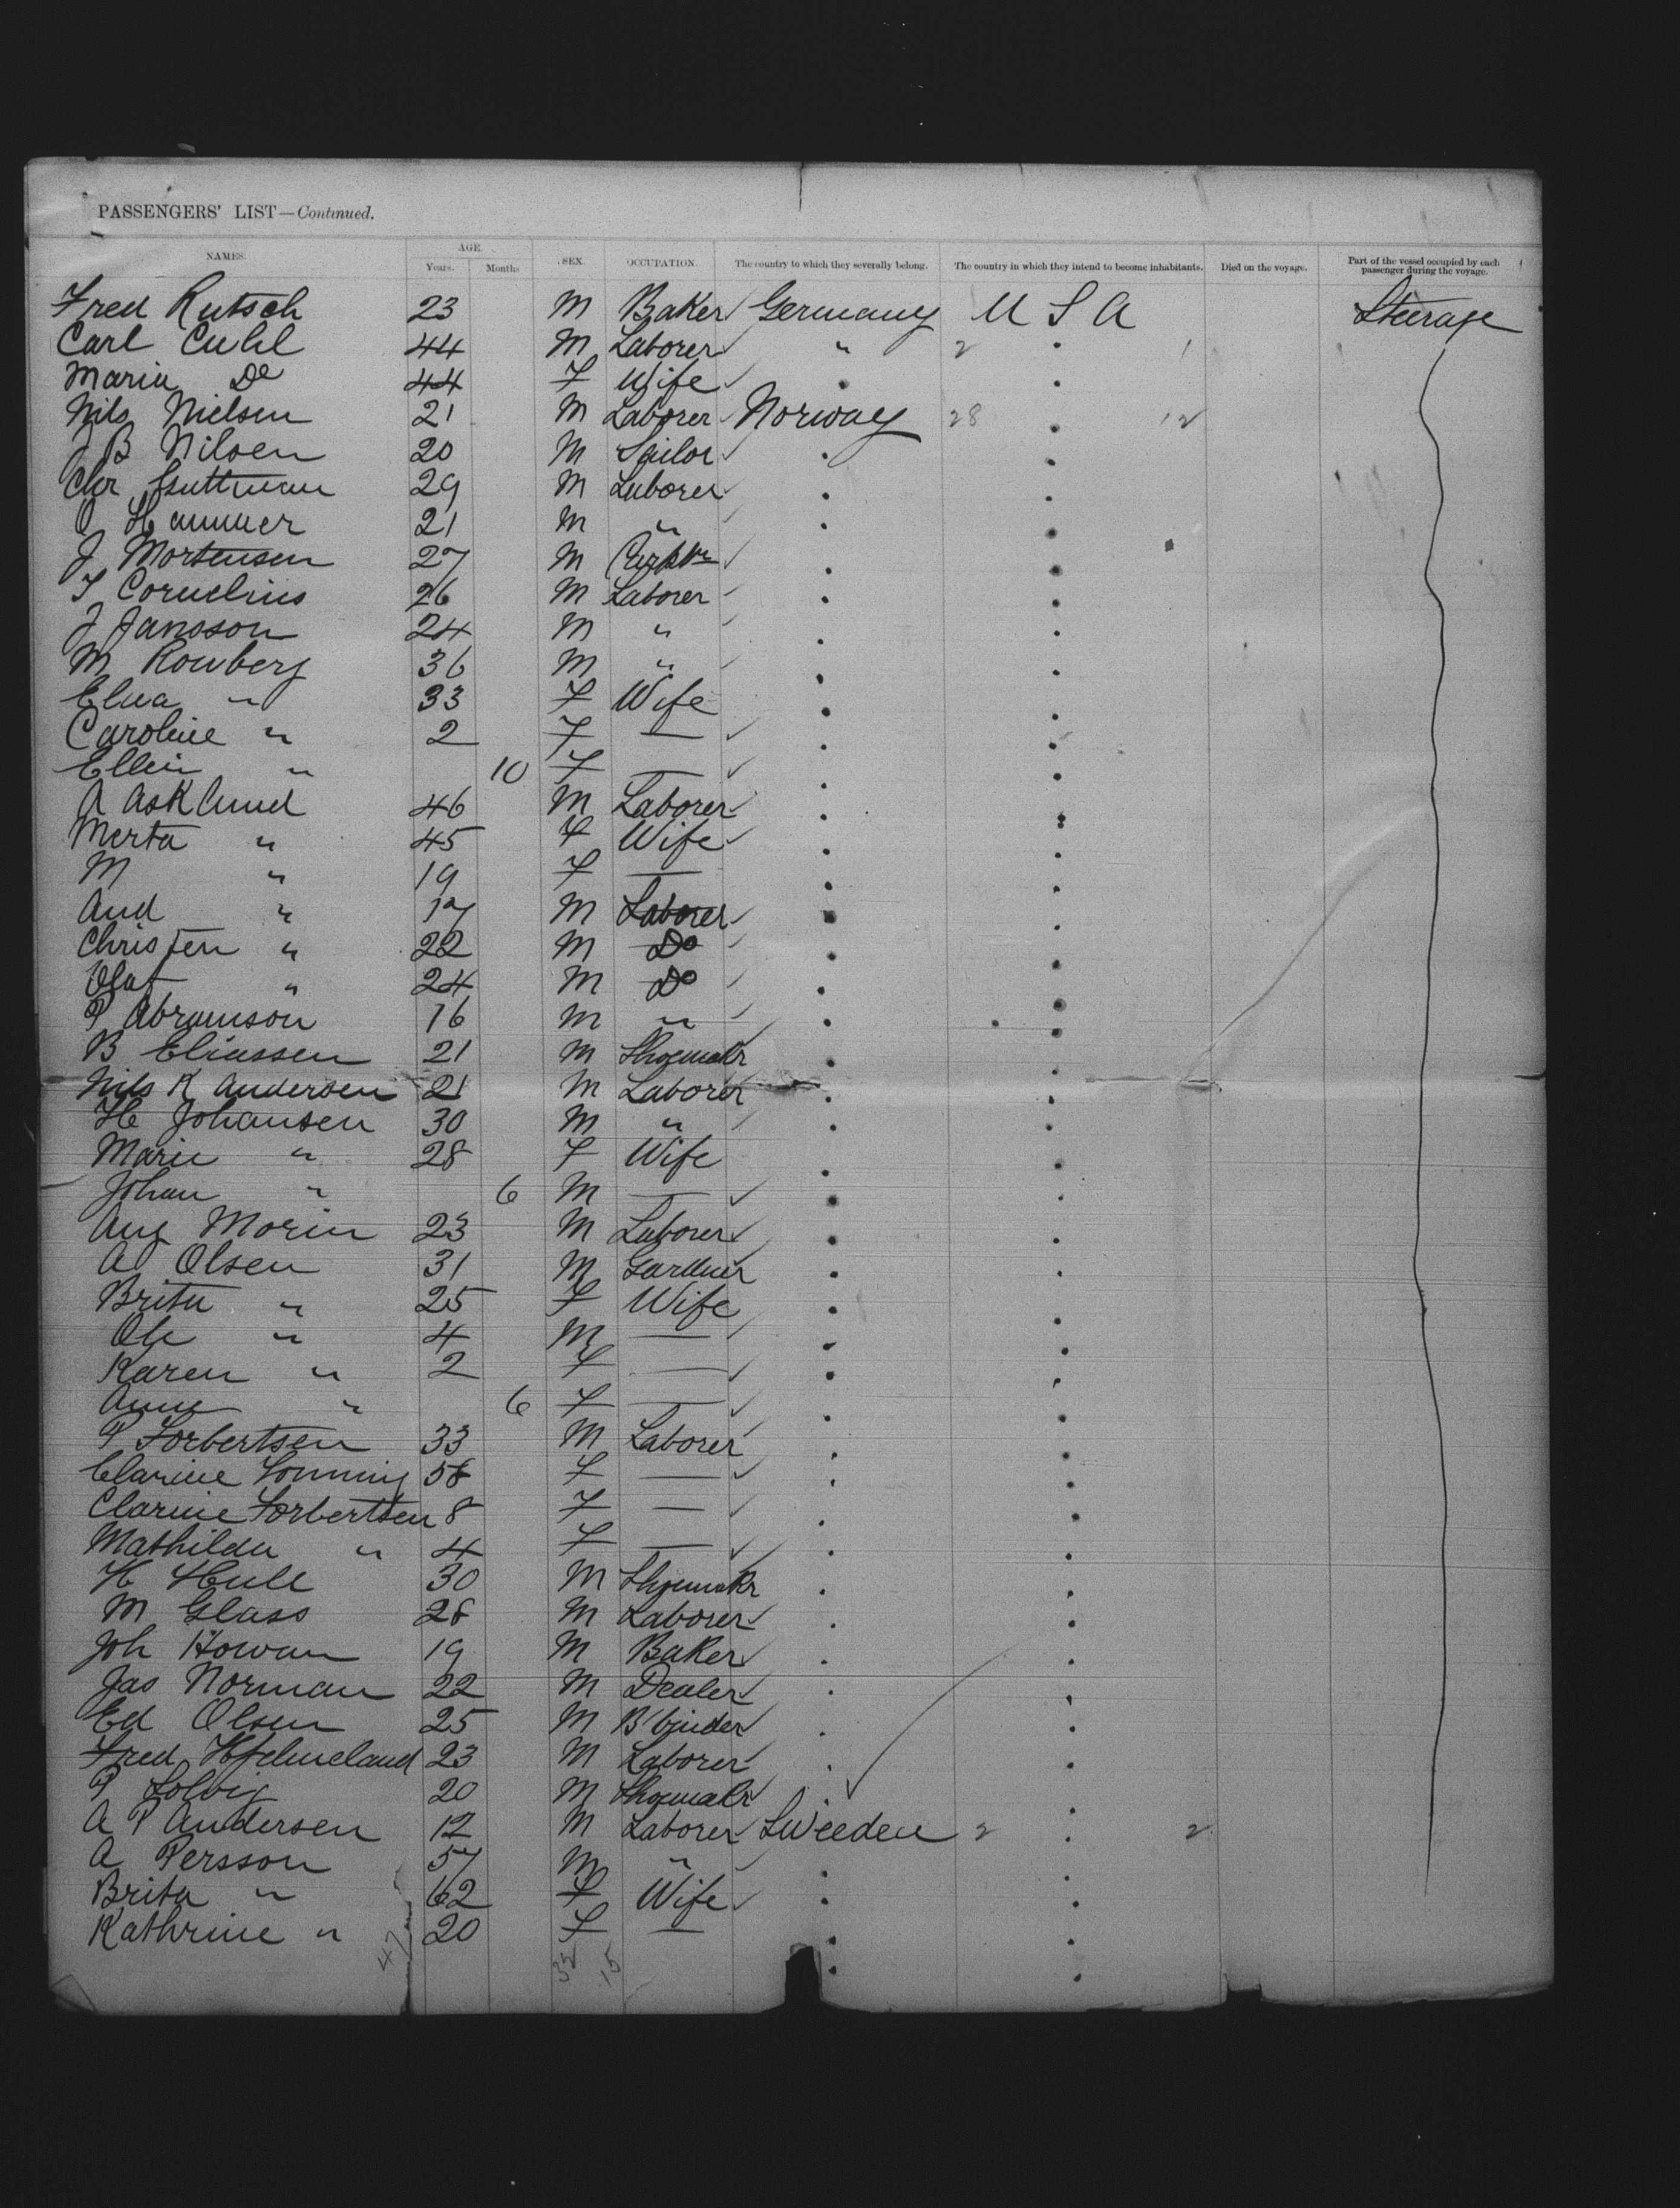 PASSENGERS' LIST—Continued.
NAMES. AGE. Years. Months SEX. OCCUPATION. The country to which they severally belong. The country in which they intend to become inhabitants. Died on the voyage. Part of the vessel occupied by each passenger during the voyage.
Fred Rutsch 23 M Baker Germany U S A Steerage
Carl Cuhl 44 M Laborer " 2 1
Maria Do 44 F Wife
Nils Nielsen 21 M Laborer Norway 28 12
J B Nilsen 20 M Sailor
Chr Guttman 29 M Laborer
O Hammer 21 M "
J Mortensen 27 M Carptr
T Cornelius 26 M Laborer
J Jansson 24 M "
M Rowberg 36 M "
Elna " 33 F Wife
Caroline " 2 F —
Ellen " 10 F —
A Asklund 46 M Laborer
Merta " 45 F Wife
M " 19 F —
And " 17 M Laborer
Christen " 22 M Do
Olaf " 24 M Do
P Abramson 16 M "
B Eliassen 21 M Shoemakr
Nils K Andersen 21 M Laborer
H Johansen 30 M "
Marie " 28 F Wife
Johan " 6 M —
Aug Morin 23 M Laborer
A Olsen 31 M Gardner
Brita " 25 F Wife
Ole " 4 M —
Karen " 2 F —
Anne " 6 F —
P Torbertsen 33 M Laborer
Clarine Lonning 58 F —
Clarine Torbertsen 8 F —
Mathilda " 4 F —
H Hull 30 M Shoemakr
M Glass 28 M Laborer
Joh Howan 19 M Baker
Jas Norman 22 M Dealer
Ed Olsen 25 M B'binder
Fred Hjelmeland 23 M Laborer
P Solvig 20 M Shoemakr
A P Andersen 12 M Laborer Sweeden 2 2
A Persson 57 M "
Brita " 62 F Wife
Kathrine " 20 F —
47 32 15